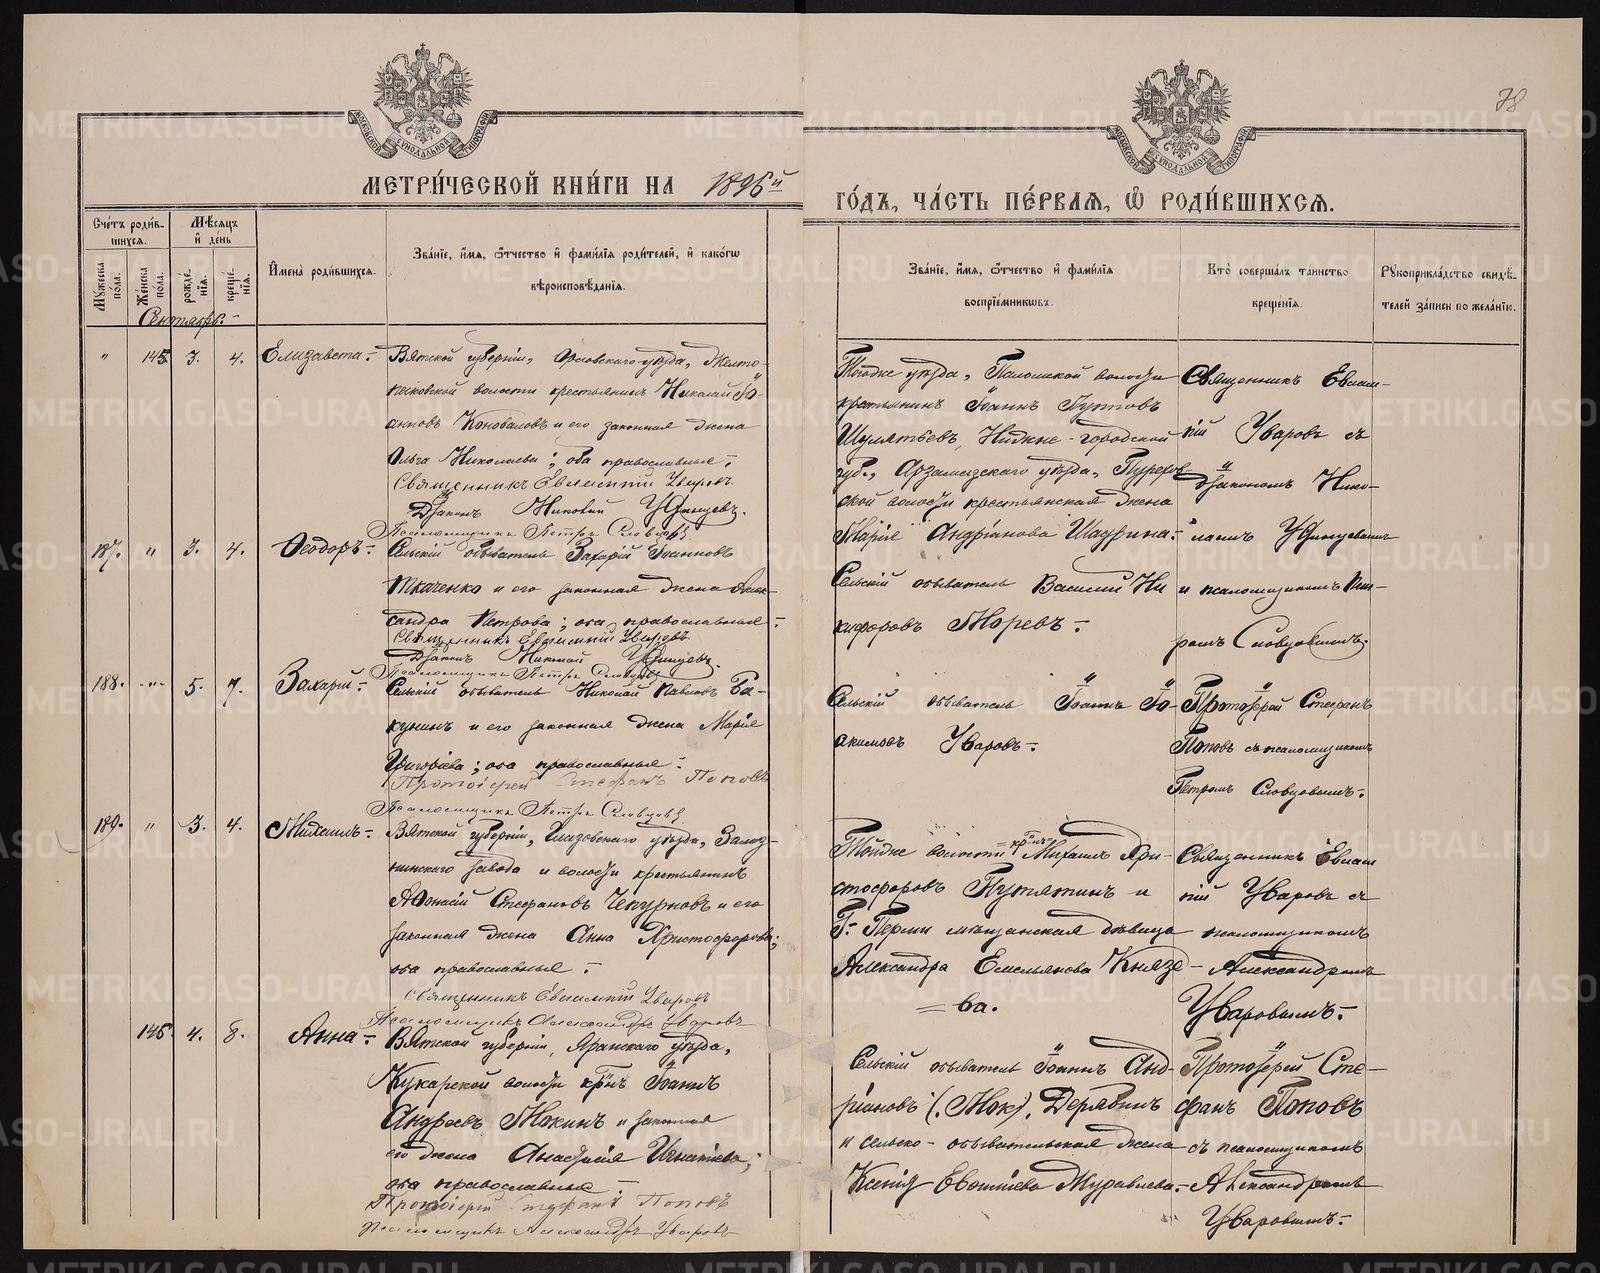 78
МЕТРИ́ЧЕСКОЙ КНИ́ГИ НА 1896й
ГО́ДЪ, ЧА́СТЬ ПЕ́РВАЯ, Ѡ РОДИ́ВШИХСЯ.
МОСКОВСКОЙ СУНОДАЛЬНОЙ ТИПОГРАФІИ
МОСКОВСКОЙ СУНОДАЛЬНОЙ ТИПОГРАФІИ
Сче́тъ роди́вшихся.
Му́жеска пола.
Же́нска пола.
Мѣ́сяцъ и де́нь
рожде́нія.
креще́нія.
Имена̀ роди́вшихся.
Зва́ніе, и́мя, ѻ́тчество и фами́лія роди́телей, и како́гѡ
вѣроисповѣ́данія.
Зва́ніе, и́мя, ѻ́тчество и фами́лія
воспріе́мникѡвъ.
Кто̀ соверша́лъ таинство
креще́нія.
Рꙋкоприкла́дство свидѣ́телей за́писи по жела́нію.
Сентябрь.
" 145 3. 4. Елизавета.
Вятской губерніи, Орловскаго уѣзда,
волости крестьянинъ Николай Іоанновъ Коноваловъ и его законная жена
Ольга Николаева; оба православные.
Священникъ Евлампій Уваровъ
Діаконъ Николай Удинцевъ.
Псаломщикъ Петръ Словцовъ
Тойже уѣзда, волости
крестьянинъ Іоаннъ
Шулятьевъ, Нижне-городской
губ., Арзамазскаго уѣзда,
волости крестьянская жена
Марія Андріанова
Священникъ Евлампій Уваровъ съ
Діакономъ Николаемъ Удинцевымъ
и псаломщикомъ Петромъ Словцовымъ.
187. " 3. 4. Ѳеодоръ.
Сельскій обыватель Захарій Іоанновъ
Ткаченко и его законная жена Александра Петрова; оба православные.
Священникъ Евлампій Уваровъ
Діаконъ Николай Удинцевъ.
Псаломщикъ Петръ Словцовъ
Сельскій обыватель Василій Никифоровъ
188. " 5. 7. Захарій.
Сельскій обыватель Николай Павловъ Бакунинъ и его законная жена Марія
Григорьева; оба православные.
Протоіерей Стефанъ Поповъ
Псаломщикъ Петръ Словцовъ
Сельскій обыватель Іоаннъ Іоакимовъ Уваровъ.
Протоіерей Стефанъ
Поповъ съ псаломщикомъ
Петромъ Словцовымъ.
189. " 3. 4. Михаилъ.
Вятской губерніи, Глазовскаго уѣзда,
завода и волости крестьянинъ
Аѳонасій Стефановъ Чепурновъ и его
законная жена Анна Христофорова;
оба православные.
Священникъ Евлампій Уваровъ
Псаломщикъ Александръ Уваровъ
Тойже волости кр-нъ Михаилъ Христофоровъ Путятинъ и
г. Перми мѣщанская дѣвица
Александра Емельянова Князева.
Священникъ Евлампій Уваровъ съ
псаломщикомъ
Александромъ
Уваровымъ.
146. 4. 8. Анна.
Вятской губерніи, Яранскаго уѣзда,
Кукарской волости кр-нъ Іоаннъ
Андреевъ Мокинъ и законная
его жена Анастасія Игнатіева;
оба православные
Протоіерей Стефанъ Поповъ
Псаломщикъ Александръ Уваровъ
Сельскій обыватель Іоаннъ Андріановъ (Мок), Дерябинъ
и сельско-обывательская жена
Ксенія Муравлева.
Протоіерей Стефанъ Поповъ
съ псаломщикомъ
Александромъ
Уваровымъ.
METRIKI.GASO-URAL.RU